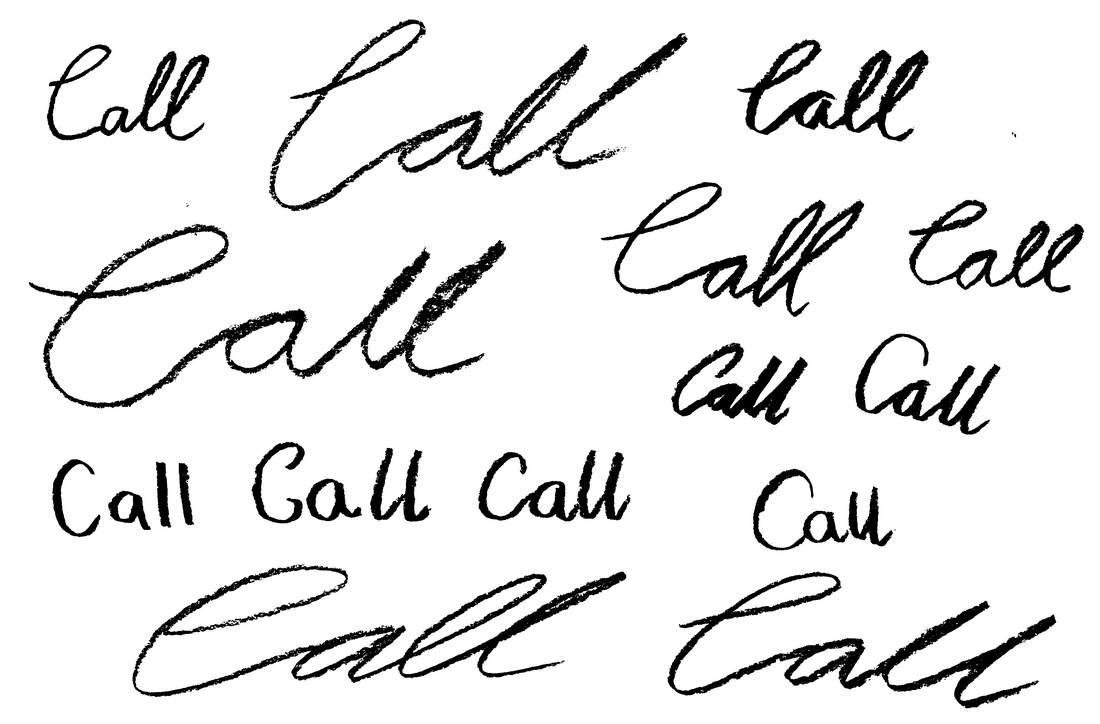 Call Call Call
Call Call Call
Call Call
Call Call Call Call
Call Call